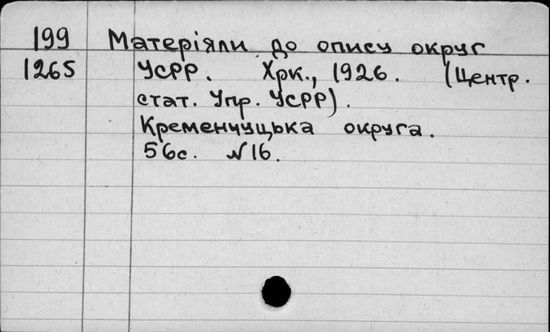 199 Матеріяли до опису округ
1265 УСРР. Хрк., 1926. (Центр.
стат. Упр. УСРР).
Кременчуцька округа.
56с. №16.